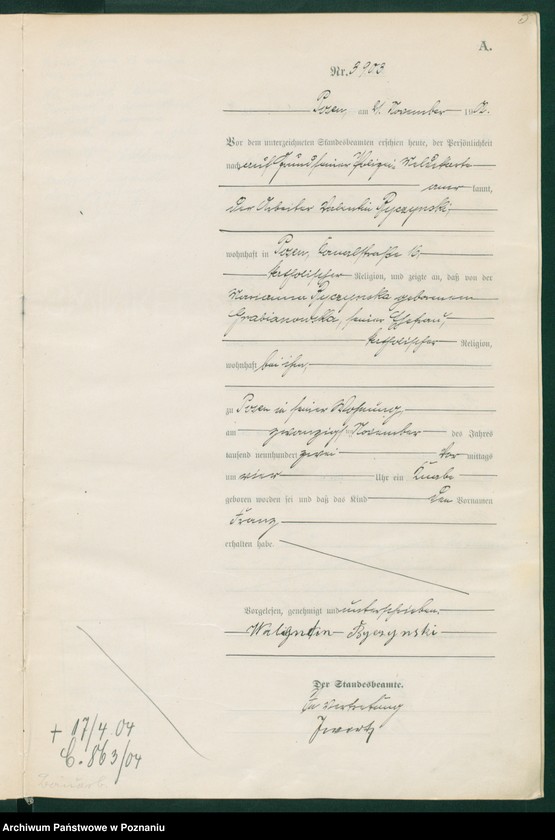 A.
Nr. 3903
Posen, am 21. November 1902.
Vor dem unterzeichneten Standesbeamten erschien heute, der Persönlichkeit
nach auf Grund seiner Polizei Meldekarte
aner kannt,
der Arbeiter Valentin Ryczynski,
wohnhaft in Posen, Canalstraße 16,
katholischer Religion, und zeigte an, daß von der
Marianna Ryczynska geborenen
Grabianowska, seiner Ehefrau,
katholischer Religion,
wohnhaft bei ihm,
zu Posen in seiner Wohnung
am zwanzigsten November des Jahres
tausend neunhundert zwei Vor mittags
um vier Uhr ein Knabe
geboren worden sei und daß das Kind den Vornamen
Franz
erhalten habe.
Vorgelesen, genehmigt und unterschrieben.
Walentin Ryczynski
Der Standesbeamte.
In Vertretung
+ 17/4 04
C. 863/04
Archiwum Państwowe w Poznaniu